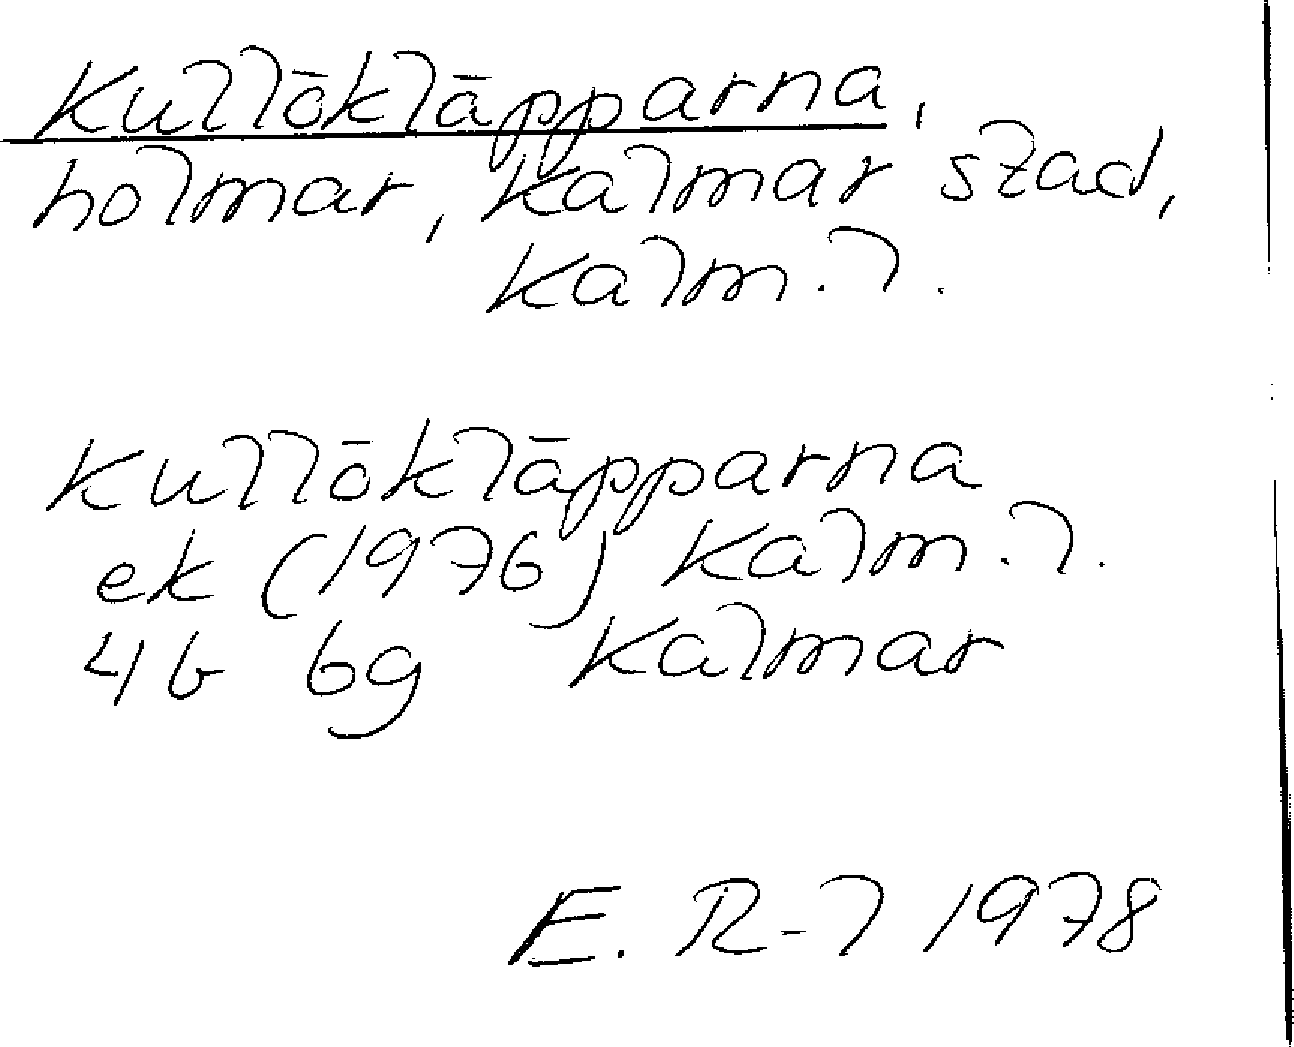 Kullökläpparna,
holmar, Kalmar stad,
Kalm. l.
Kullökläpparna
ek (1976) Kalm. l.
4G 6g Kalmar
E. R-l 1978